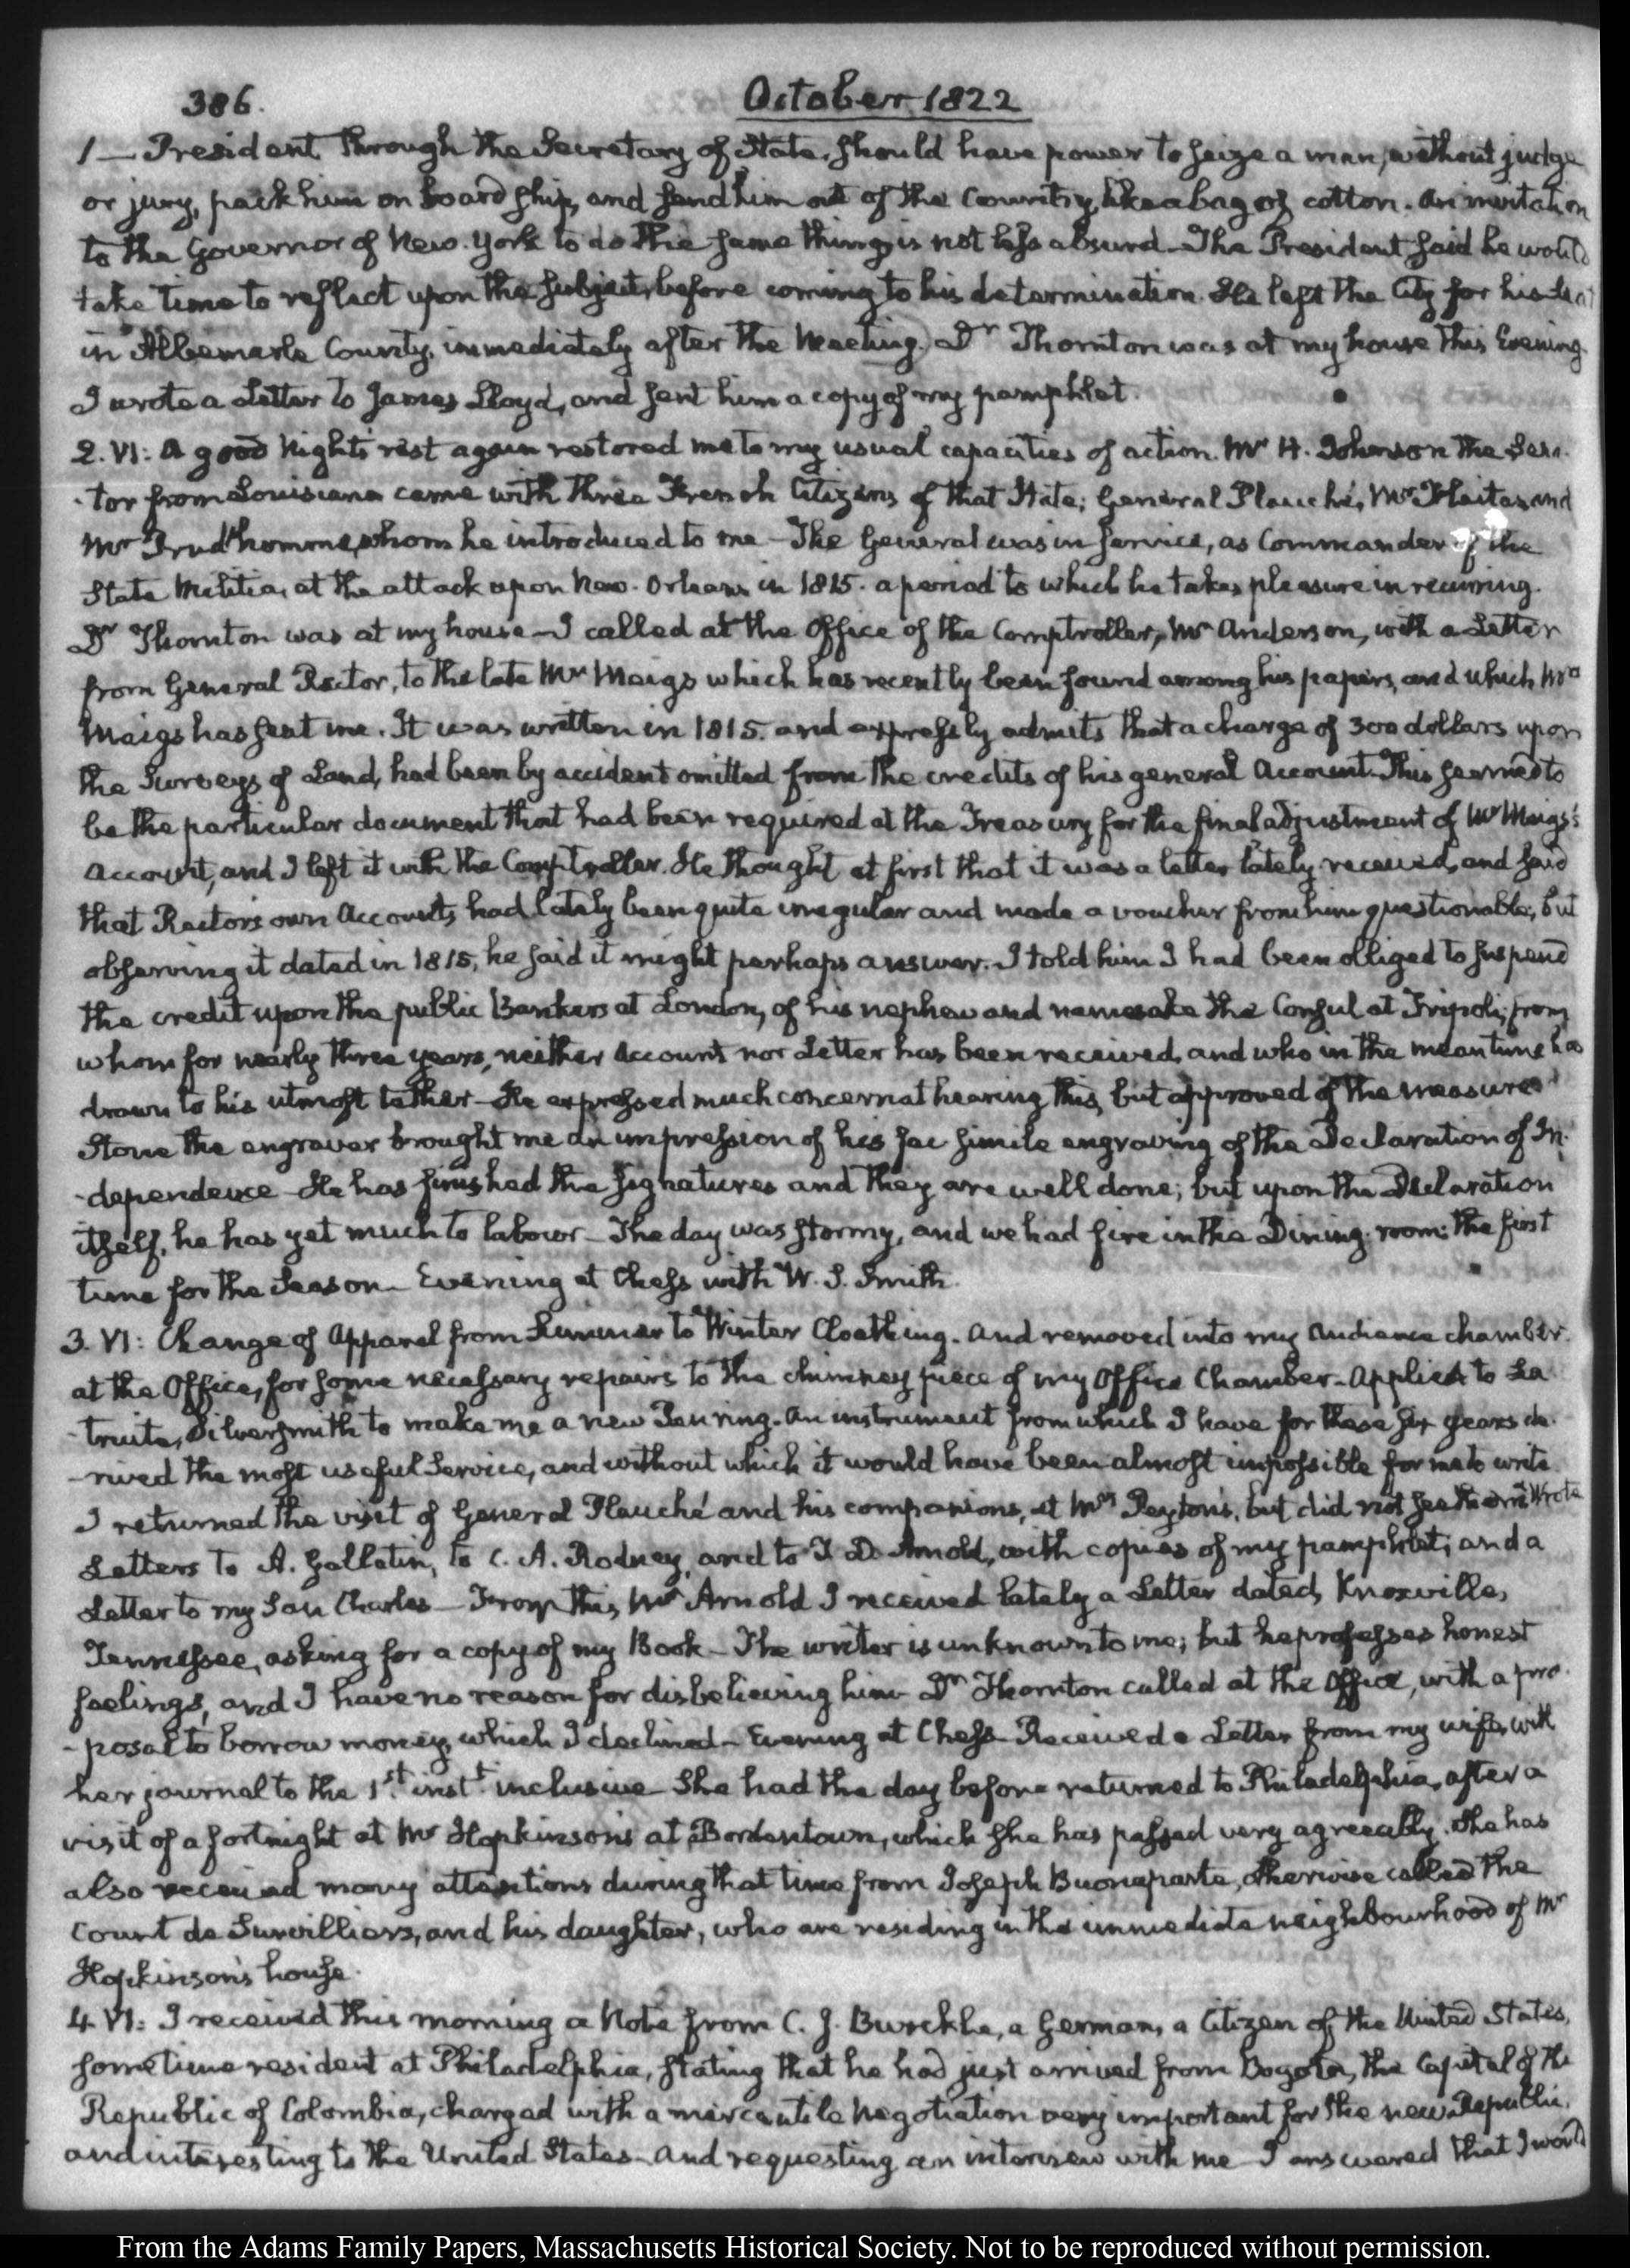 386.
October 1822
1 — President through the Secretary of State, should have power to seize a man, without judge
or jury, pack him on board ship, and send him out of the Country, like a bag of cotton. An invitation
to the Governor of New-York to do the same thing, is not less absurd — The President said he would
take time to reflect upon the subject, before coming to his determination. He left the City for his seat
in Albemarle County, immediately after the Meeting. Dr Thornton was at my house this Evening.
I wrote a Letter to James Lloyd, and sent him a copy of my pamphlet.
2. VI: A good Night's rest again restored me to my usual capacities of action. Mr H. Johnson the Sena-
-tor from Louisiana came with three French Citizens of that State; General Plauché, Mr Fleitas and
Mr Prud'homme, whom he introduced to me — The General was in service, as Commander of the
State Militia, at the attack upon New-Orleans in 1815. a period to which he takes pleasure in recurring.
Dr Thornton was at my house — I called at the Office of the Comptroller, Mr Anderson, with a Letter
from General Rector, to the late Mr Meigs which has recently been found among his papers, and which Mrs
Meigs has sent me. It was written in 1815. and expressly admits that a charge of 300 dollars upon
the Surveys of Land, had been by accident omitted from the credits of his general Account. This seemed to
be the particular document that had been required at the Treasury for the final adjustment of Mr Meigs's
Account, and I left it with the Comptroller. He thought at first that it was a letter lately received, and said
that Rector's own Accounts had lately been quite irregular and made a voucher from him questionable, but
observing it dated in 1815, he said it might perhaps answer. I told him I had been obliged to suspend
the credit upon the public Bankers at London, of his nephew and namesake the Consul at Tripoli, from
whom for nearly three years, neither Account nor Letter has been received, and who in the meantime has
drawn to his utmost tether — He expressed much concern at hearing this, but approved of the measure
Stone the engraver brought me an impression of his fac simile engraving of the Declaration of In-
-dependence — He has finished the signatures and they are well done; but upon the Declaration
itself, he has yet much to labour — The day was stormy, and we had fire in the Dining-room: the first
time for the Season — Evening at Chess with W. S. Smith
3. VI: Change of Apparel from Summer to Winter Cloathing. And removed into my Audience chamber
at the Office, for some necessary repairs to the chimney piece of my Office Chamber — Applied to La-
-truite, Silversmith to make me a new Pen ring. An instrument from which I have for these six years de-
-rived the most useful service, and without which it would have been almost impossible for me to write
I returned the visit of General Plauché and his companions, at Mrs Peyton's, but did not see them Wrote
Letters to A. Gallatin, to C. A. Rodney, and to T. D. Arnold, with copies of my pamphlet; and a
Letter to my Son Charles — From this Mr Arnold I received lately a Letter dated, Knoxville,
Tennessee, asking for a copy of my Book — The writer is unknown to me; but he professes honest
feelings, and I have no reason for disbelieving him — Dr Thornton called at the Office, with a pro-
-posal to borrow money, which I declined — Evening at Chess — Received a Letter from my wife, with
her journal to the 1st. inst. inclusive — She had the day before returned to Philadelphia, after a
visit of a fortnight at Mr Hopkinson's at Bordentown, which she has passed very agreeably. She has
also received many attentions during that time from Joseph Buonaparte, otherwise called the
Count de Survilliers, and his daughter, who are residing in the immediate neighbourhood of Mr
Hopkinson's house.
4. VI: I received this morning a Note from C. J. Burckle, a German, a Citizen of the United States,
sometime resident at Philadelphia, stating that he had just arrived from Bogota, the Capital of the
Republic of Colombia, charged with a mercantile Negotiation very important for the new Republic,
and interesting to the United States — and requesting an interview with me — I answered that I would
From the Adams Family Papers, Massachusetts Historical Society. Not to be reproduced without permission.